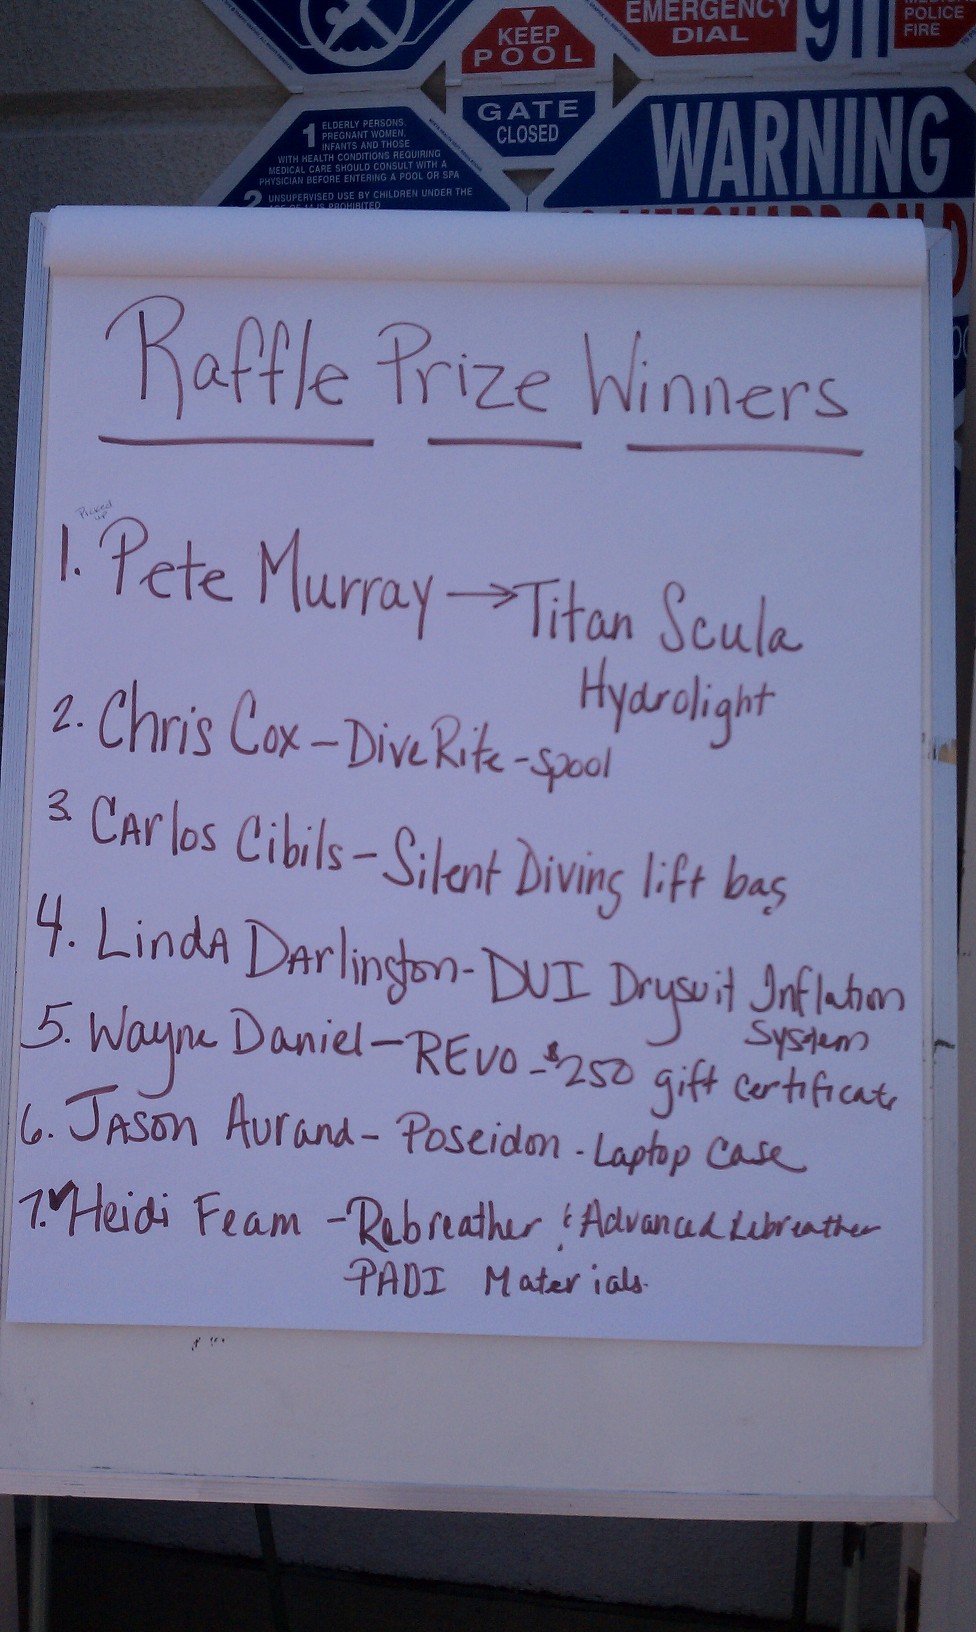 KEEP
POOL
GATE
CLOSED
EMERGENCY
DIAL
911
POLICE
FIRE
1 ELDERLY PERSONS,
PREGNANT WOMEN,
INFANTS AND THOSE
WITH HEALTH CONDITIONS REQUIRING
MEDICAL CARE SHOULD CONSULT WITH A
PHYSICIAN BEFORE ENTERING A POOL OR SPA
2 UNSUPERVISED USE BY CHILDREN UNDER THE
AGE OF 14 IS PROHIBITED
WARNING
LIFEGUARD ON
Raffle Prize Winners
Picked
up
1. Pete Murray → Titan Scula
Hydrolight
2. Chris Cox - Dive Rite - spool
3. Carlos Cibils - Silent Diving lift bag
4. Linda Darlington - DUI Drysuit Inflation
System
5. Wayne Daniel - REVO - $250 gift certificate
6. Jason Aurand - Poseidon - Laptop Case
7. Heidi Feam - Rebreather & Advanced Rebreather
PADI Materials.